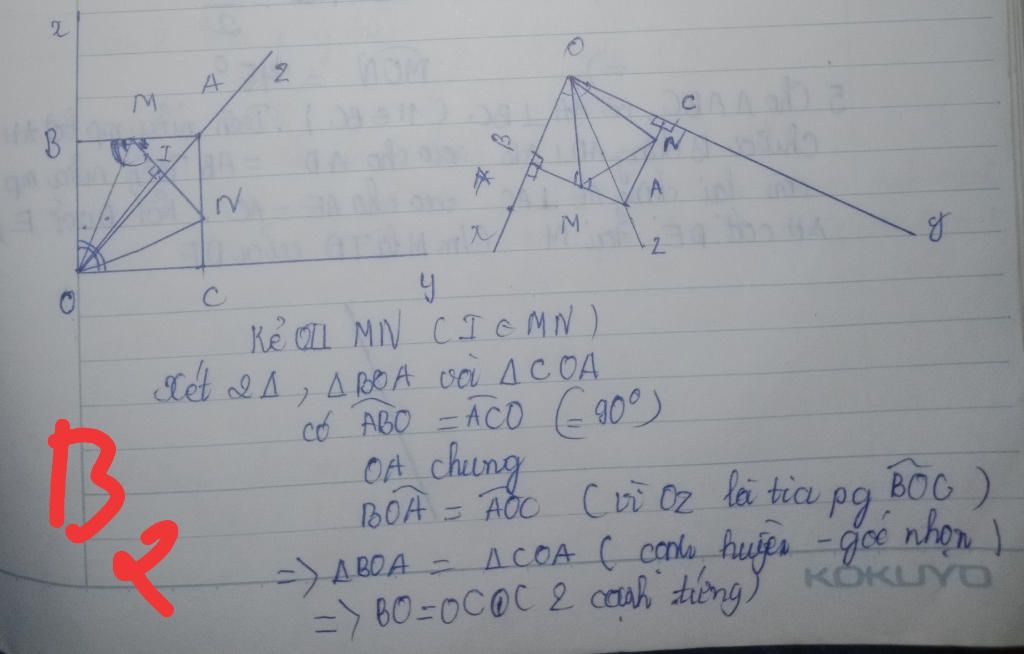 x
B
M
A
z
I
N
O
C
y
O
B
C
N
A
x
M
z
y
Kẻ OI MN (I ∈ MN)
Xét 2 Δ, ΔBOA với ΔCOA
có ABO = ACO (= 90°)
OA chung
BOA = AOC (vì Oz là tia pg BOC)
=> ΔBOA = ΔCOA (cạnh huyền - góc nhọn)
=> BO = OC ( 2 cạnh tứng)
B2
KOKUYO